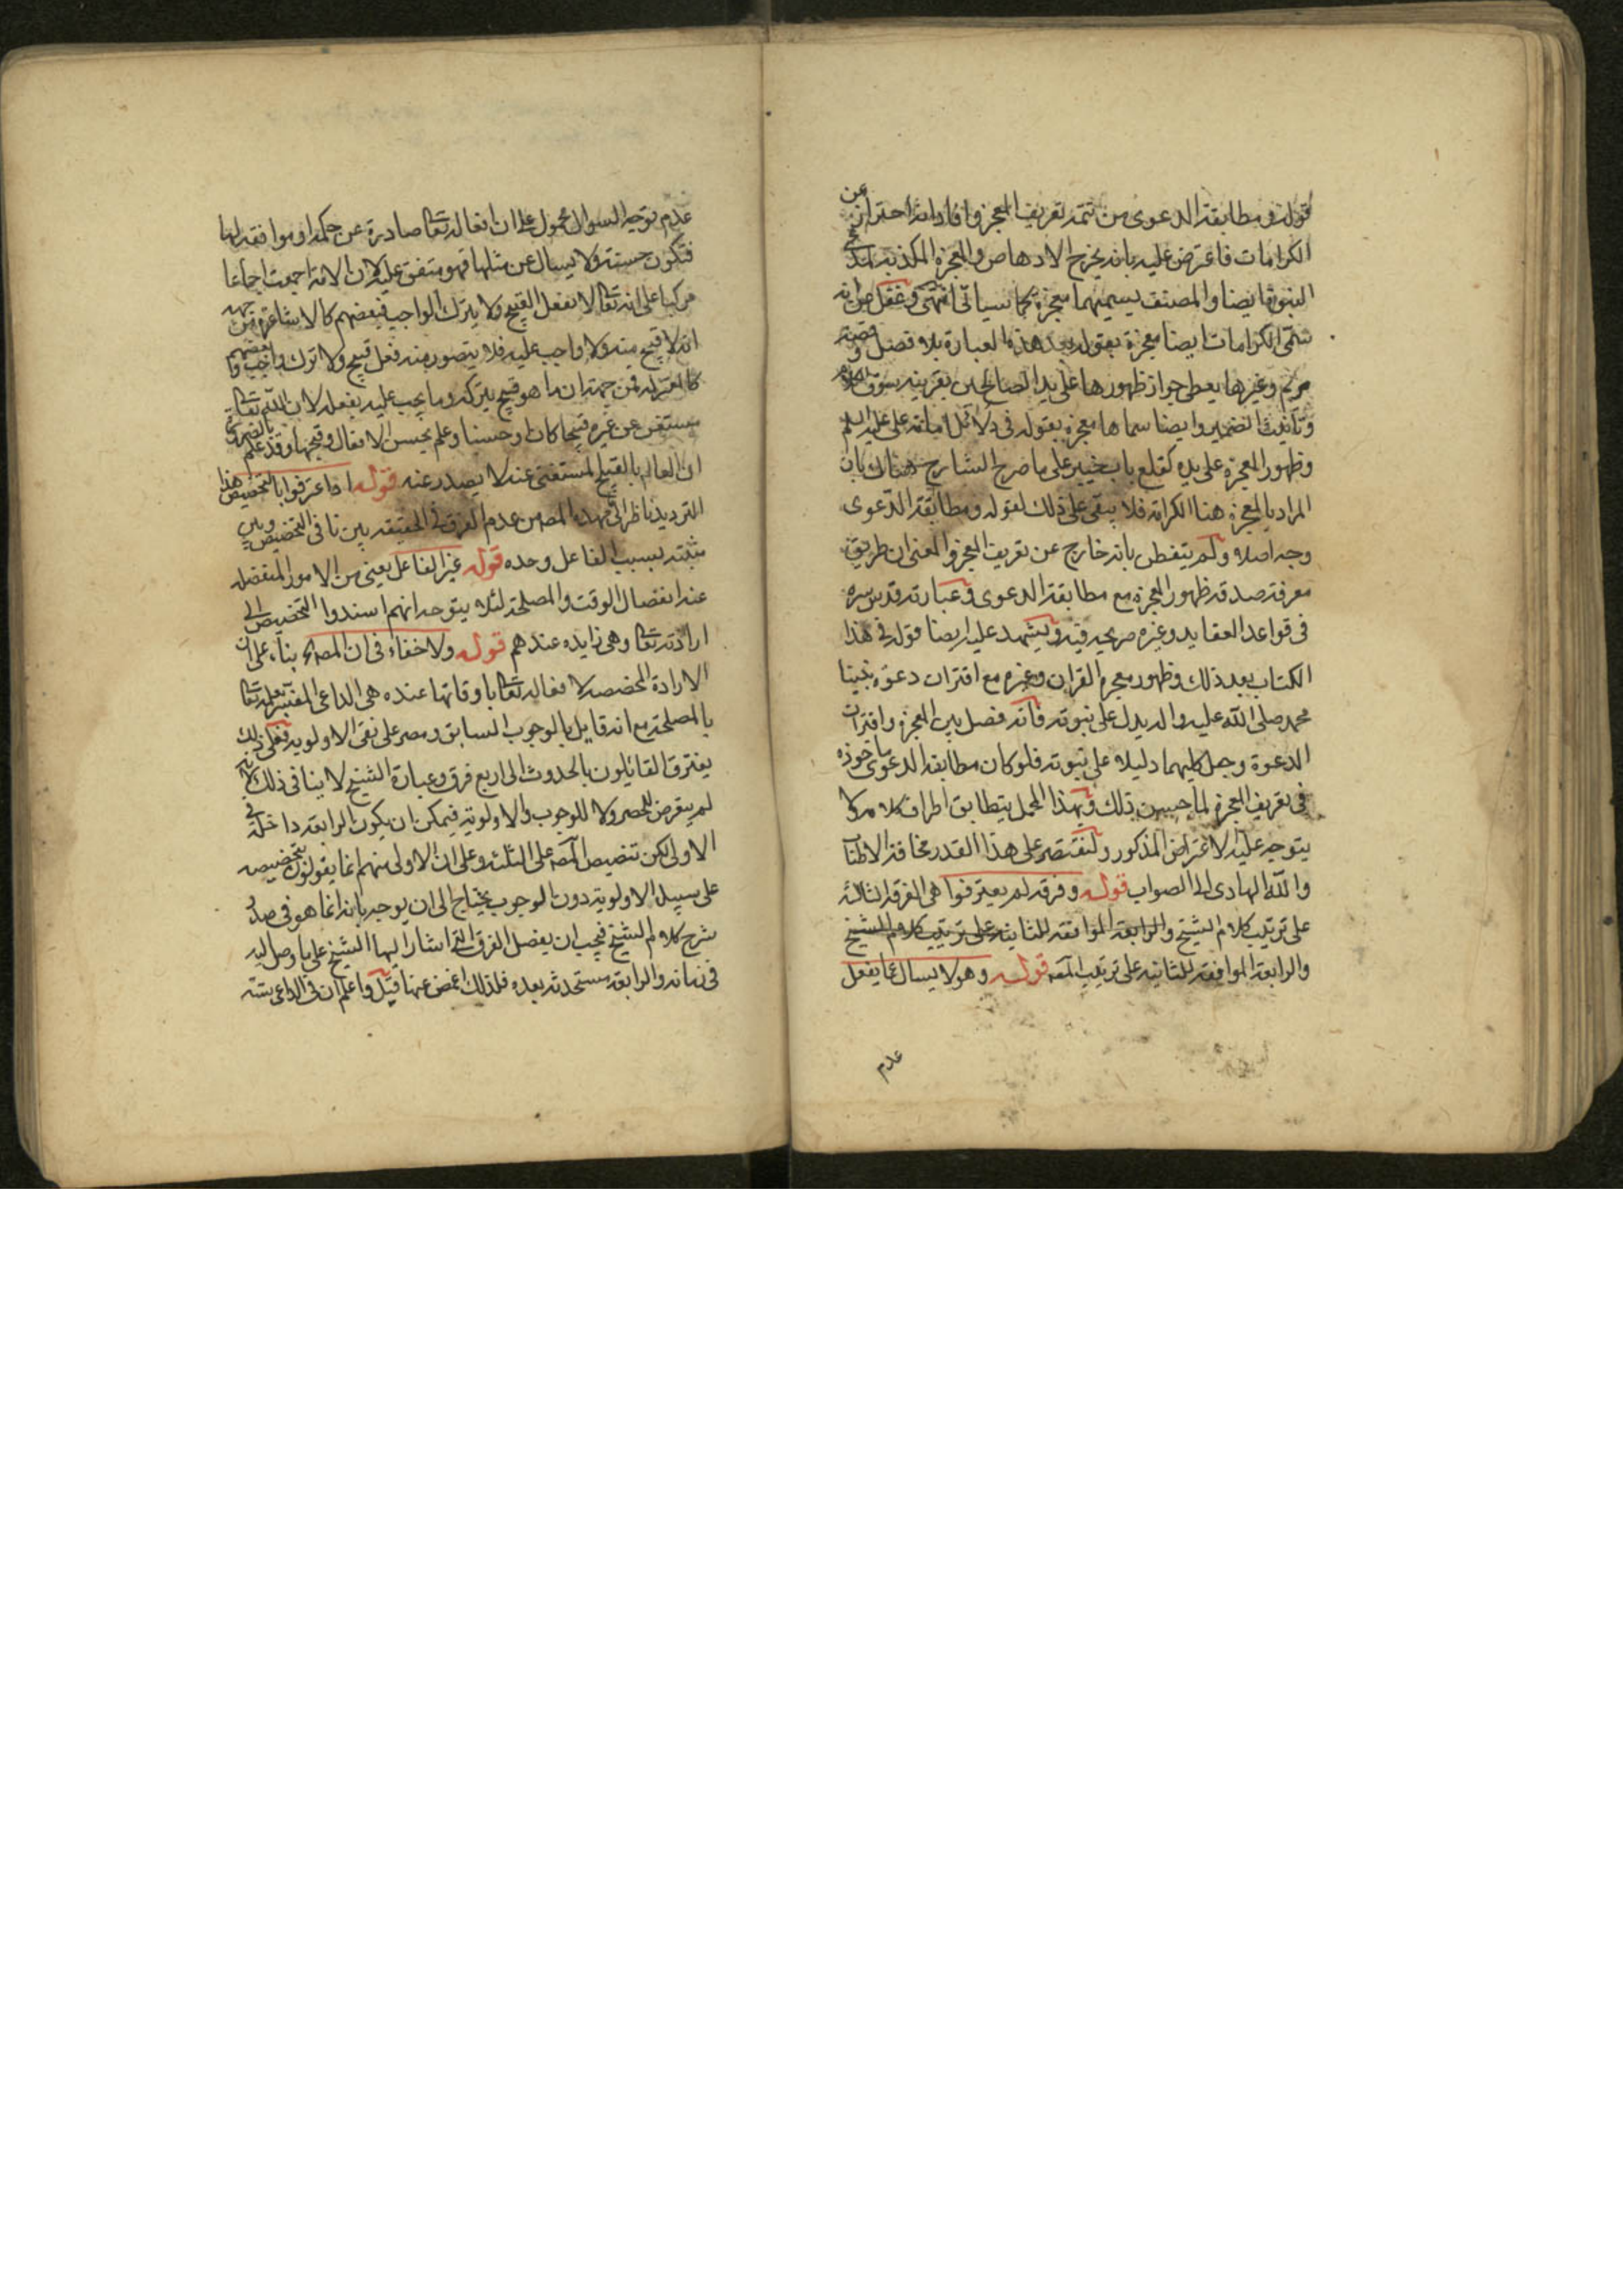 قوله ومطابقة الدعوى من تتمة تعريف المعجز وافاد انه احتراز عن
الكرامات فاعترض عليه بانه يخرج الارهاص والمعجزة المكذبة
النبوة ايضا والمصنف يسميهما معجزة كما سياتي انتهى وغفل من انه
سمى الكرامات ايضا معجزة بقوله بعد هذه العبارة بلا فصل وقصة
مريم وغيرها يعطي جواز ظهورها على يد الصالحين بقرينة سوق الكلام
وتانيث الضمير وايضا سماها معجزة بقوله في دلائل امامة على عليه السلم
وظهور المعجزة على يده كقلع باب خيبر على ما صرح الشارح هناك بان
المراد بالمعجزة هنا الكرامة فلا يبقى على ذلك لقوله ومطابقة الدعوى
وجه اصلا ولم يتفطن بانه خارج عن تعريف المعجز والمعنى ان طريق
معرفة صدقه ظهور المعجزة مع مطابقة الدعوى وعبارته قدس سره
في قواعد العقايد وغيره صريحة فيه ويشهد عليه ايضا قوله في هذا
الكتاب بعد ذلك وظهور معجزة القران وغيره مع اقتران دعوة نبينا
محمد صلى الله عليه واله يدل على نبوته فانه فصل بين المعجزة واقتران
الدعوة وجعل كليهما دليلا على نبوته فلو كان مطابقة الدعوى ماخوذة
في تعريف المعجزة لما حسن ذلك وبهذا المحمل يتطابق اطراف كلامه ولا
يتوجه عليه الاعتراض المذكور ولنقتصر على هذا القدر مخافة الاطناب
والله الهادى الى الصواب قوله وفرقة لم يعترفوا هي الفرقة الثالثة
على ترتيب كلام الشيخ والرابعة الموافقة للثانية على ترتيب كلام الشيخ
والرابعة الموافقة للثانية على ترتيب المصه قوله وهو لا يسال عما يفعل
عدم
عدم توجه السوال محمول على ان افعاله تعالى صادرة عن حكمة وموافقة لها
فتكون حسنة ولا يسال عن مثلها فهو متفق عليه لان الامة اجمعت اجماعا
مركبا على انه تعالى لا يفعل القبيح ولا يترك الواجب فبعضهم كالاشاعرة من جهة
انه لا قبيح منه ولا واجب عليه فلا يتصور منه فعل قبيح ولا ترك واجب واما بعضهم
كالمعتزلة فمن جهة ان ما هو قبيح يتركه وما يجب عليه يفعله لان الله تعالى
مستغن عن غيره قبيحا كان او حسنا وعلم بحسن الافعال وقبحها وقد علم بالضرورة
ان العالم بالقبيح المستغنى عنه لا يصدر عنه قوله اذا عترفوا بالتخصيص هذا
الترديد ناظر الى تمهيد المصه من عدم الفرق في الحقيقة بين نافي التخصيص وبين
مثبته بسبب الفاعل وحده قوله غير الفاعل يعني من الامور المنفصلة
عنه انفصال الوقت والمصلحة لئلا يتوجه انهم اسندوا التخصيص الى
ارادته تعالى وهي زايدة عندهم قوله ولا خفاء في ان المصه بناء على ان
الارادة المخصصة لافعاله تعالى باوقاتها عنده هي الداعي المفسر بعلمه تعالى
بالمصلحة مع انه قايل بالوجوب السابق ومصر على نفي الاولوية فعلى ذلك
يفترق القائلون بالحدوث الى اربع فرق وعبارة الشيخ لا ينافي ذلك لانه
لم يتعرض للحصر ولا للوجوب والاولوية فيمكن ان يكون الرابعة داخلة في
الاولى لكن تنصيص المصه على الثلثة وعلى ان الاولى منهم انما يقولون بتخصيصه
على سبيل الاولوية دون الوجوب يحتاج الى ان يوجه بانه انما هو في صدد
شرح كلام الشيخ فيجب ان يفصل الفرق التي اشار اليها الشيخ على ما وصل اليه
في زمانه والرابعة مستحدثة بعده فلذلك اغمض عنها قيل واعلم ان في الداعي ستة